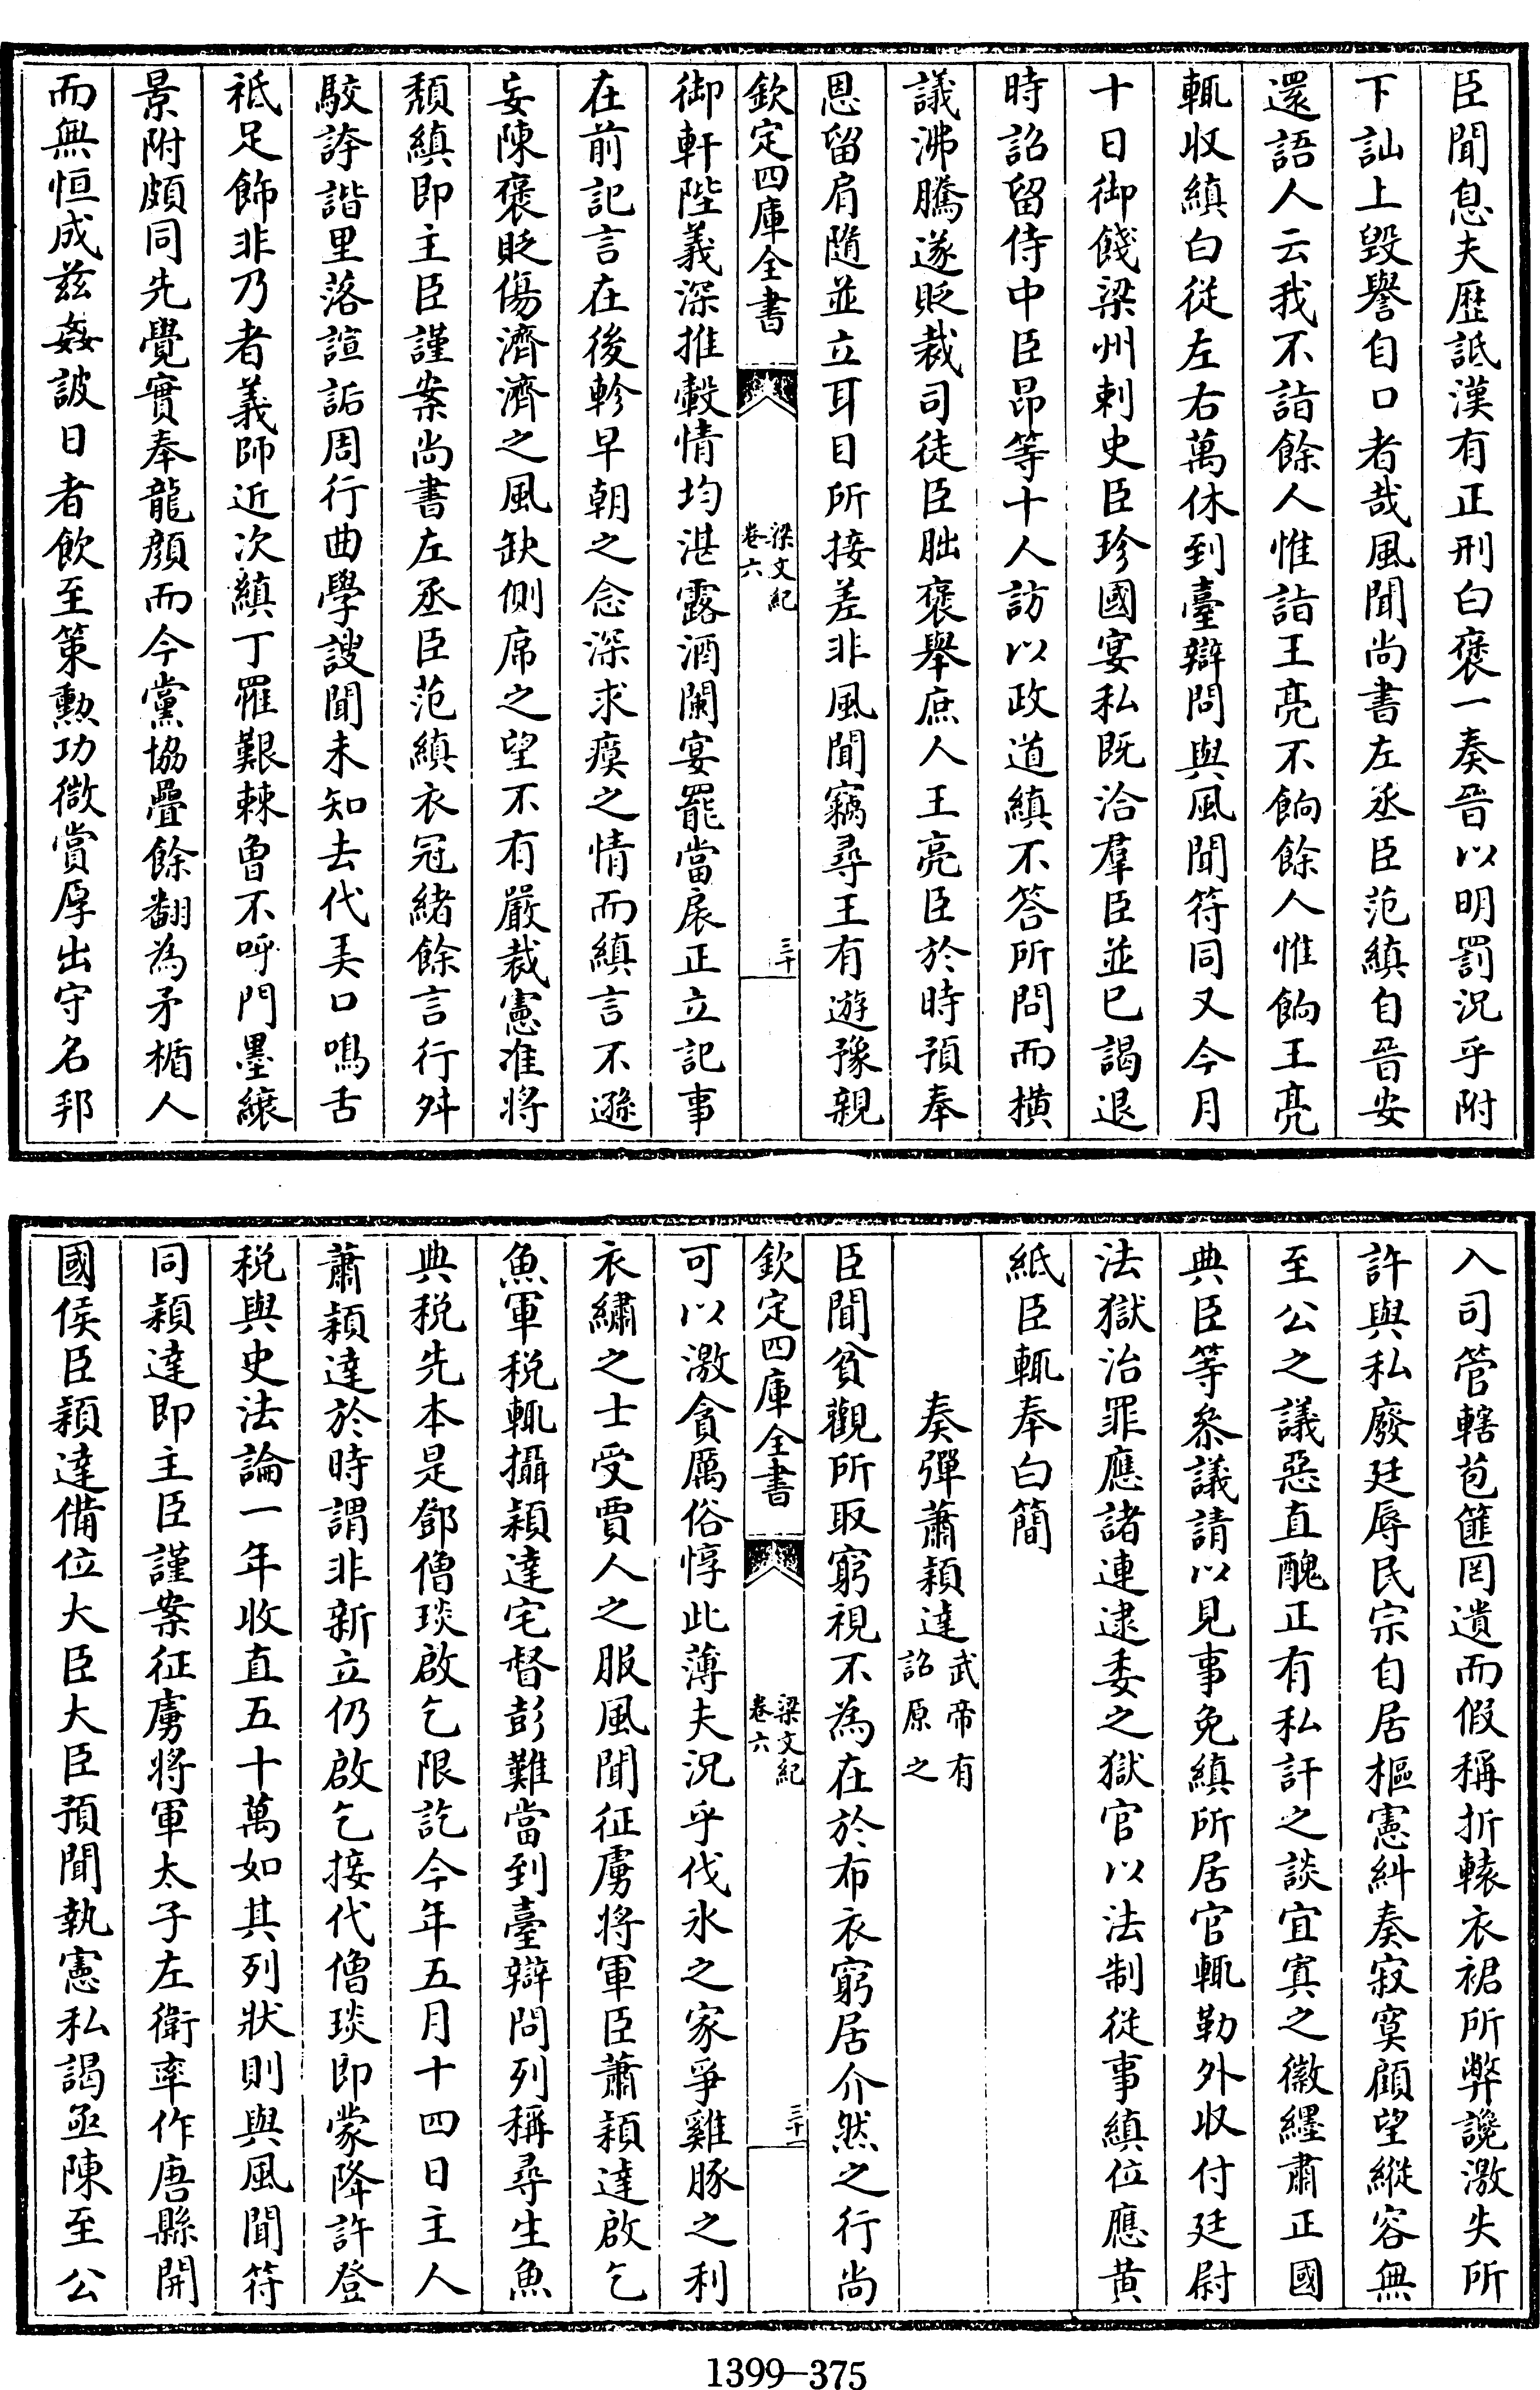 臣聞息夫歷詆漢有正刑白褒一奏晉以明罰況乎附
下訕上毀譽自口者哉風聞尚書左丞臣范縝自晉安
還語人云我不詣餘人惟詣王亮不餉餘人惟餉王亮
輒收縝白從左右萬休到臺辯問與風聞符同又今月
十日御餞梁州刺史臣珍國宴私既洽羣臣並已謁退
時詔留侍中臣昂等十人訪以政道縝不答所問而橫
議沸騰遂貶裁司徒臣朏褒舉庶人王亮臣於時預奉
恩留肩隨並立耳目所接差非風聞竊尋王有遊豫親
欽定四庫全書
梁文紀
卷六
三十
御軒陛義深推轂情均湛露酒闌宴罷當扆正立記事
在前記言在後軫早朝之念深求瘼之情而縝言不遜
妄陳褒貶傷濟濟之風缺側席之望不有嚴裁憲准將
頹縝即主臣謹案尚書左丞臣范縝衣冠緒餘言行舛
駮誇諧里落諠詬周行曲學謏聞未知去代美口鳴舌
祗足飾非乃者義師近次縝丁罹艱棘曾不呼門墨縗
景附頗同先覺實奉龍顏而今黨協疊餘翻為矛楯人
而無恒成茲姦詖日者飲至策勲功微賞厚出守名邦
入司管轄苞篚罔遺而假稱折轅衣裙所弊讒激失所
許與私廢廷辱民宗自居樞憲糾奏寂寞顧望縱容無
至公之議惡直醜正有私訐之談宜寘之徽纆肅正國
典臣等叅議請以見事免縝所居官輒勒外收付廷尉
法獄治罪應諸連逮委之獄官以法制從事縝位應黃
紙臣輒奉白簡
奏彈蕭穎達武帝有
詔原之
臣聞貧觀所取窮視不為在於布衣窮居介然之行尚
欽定四庫全書
梁文紀
卷六
三十一
可以激貪厲俗惇此薄夫況乎伐氷之家爭雞豚之利
衣繡之士受賈人之服風聞征虜將軍臣蕭穎達啟乞
魚軍税輒攝穎達宅督彭難當到臺辯問列稱尋生魚
典税先本是鄧僧琰啟乞限訖今年五月十四日主人
蕭穎達於時謂非新立仍啟乞接代僧琰即蒙降許登
税與史法論一年收直五十萬如其列狀則與風聞符
同穎達即主臣謹案征虜將軍太子左衛率作唐縣開
國侯臣穎達備位大臣大臣預聞執憲私謁亟陳至公
1399—375